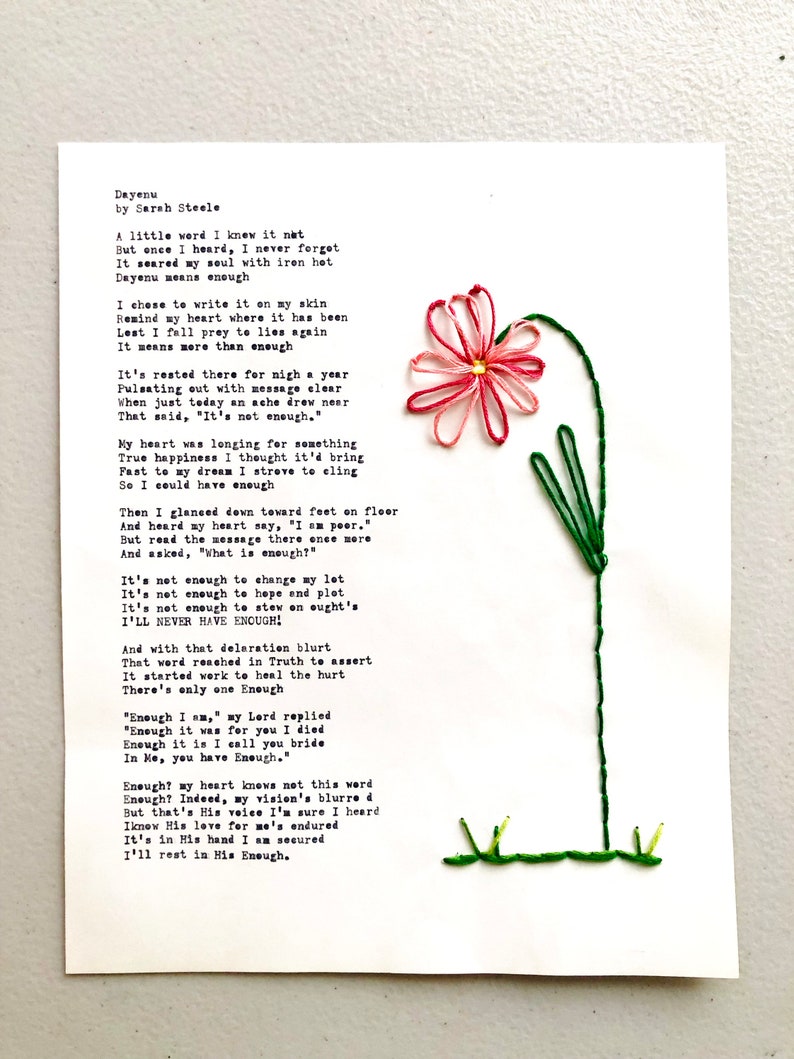 Dayenu
by Sarah Steele
A little word I knew it not
But once I heard, I never forgot
It seared my soul with iron hot
Dayenu means enough
I chose to write it on my skin
Remind my heart where it has been
Lest I fall prey to lies again
It means more than enough
It's rested there for nigh a year
Pulsating out with message clear
When just today an ache drew near
That said, "It's not enough."
My heart was longing for something
True happiness I thought it'd bring
Fast to my dream I strove to cling
So I could have enough
Then I glanced down toward feet on floor
And heard my heart say, "I am poor."
But read the message there once more
And asked, "What is enough?"
It's not enough to change my lot
It's not enough to hope and plot
It's not enough to stew on ought's
I'LL NEVER HAVE ENOUGH!
And with that delaration blurt
That word reached in Truth to assert
It started work to heal the hurt
There's only one Enough
"Enough I am," my Lord replied
"Enough it was for you I died
Enough it is I call you bride
In Me, you have Enough."
Enough? my heart knows not this word
Enough? Indeed, my vision's blurre d
But that's His voice I'm sure I heard
Iknow His love for me's endured
It's in His hand I am secured
I'll rest in His Enough.